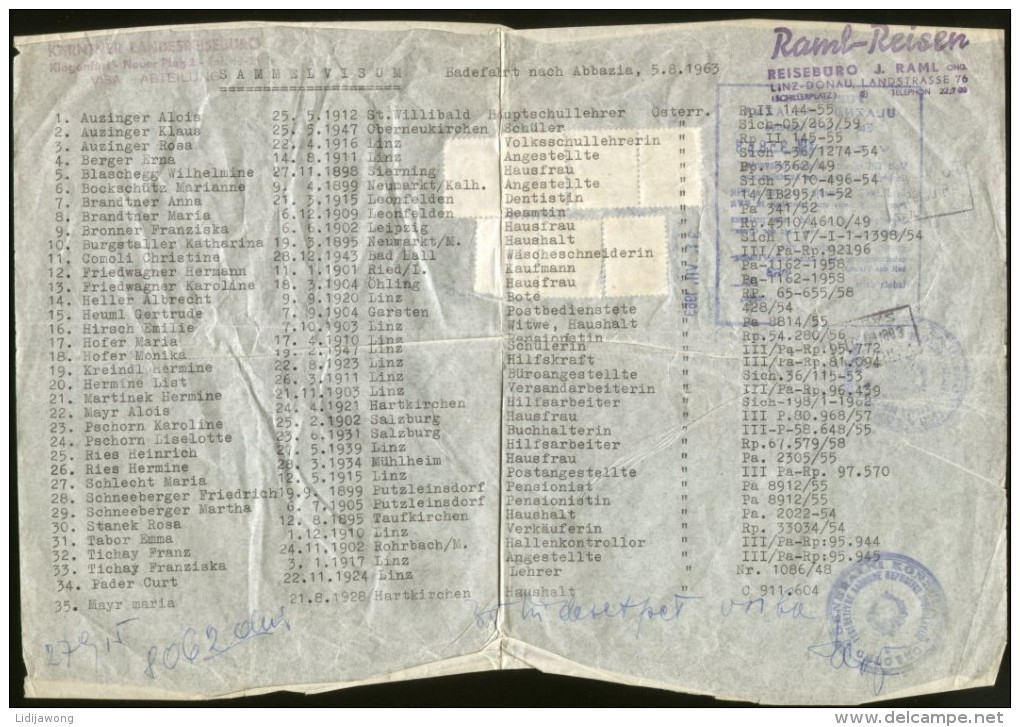 KÄRNTNER LANDESREISEBÜRO
Klagenfurt - Neuer Platz 2
ABA - ABTEILUNG
Raml-Reisen
REISEBÜRO J. RAML OHG.
LINZ-DONAU, LANDSTRASSE 76
(SCHILLERPLATZ) TELEPHON
SAMMELVISUM Badefahrt nach Abbazia, 5.8.1963
1. Auzinger Alois 25. 5.1912 St.Willibald Hauptschullehrer Österr. RpII 144-55
2. Auzinger Klaus 25. 5.1947 Oberneukirchen Schüler " Sich-05/263/59
3. Auzinger Rosa 22. 4.1916 Linz Volksschullehrerin " Rp.II 145-55
4. Berger Erna 14. 8.1911 Linz Angestellte " Sich -36/1274-54
5. Blaschegg Wilhelmine 27.11.1898 Sierning Hausfrau " Pp.3362/49
6. Bockschütz Marianne 9. 4.1899 Neumarkt/Kalh. Angestellte " Sich 5/10-496-54
7. Brandtner Anna 21. 3.1915 Leonfelden Dentistin " 14/IB295/1-52
8. Brandtner Maria 6.12.1909 Leonfelden Beamtin " Pa 341/52
9. Bronner Franziska 6. 6.1902 Leipzig Hausfrau " Rp.4510/4610/49
10. Burgstaller Katharina 19. 3.1895 Neumarkt/M. Haushalt " Sich (IV/-I-1-1398/54
11. Comoli Christine 28.12.1943 Bad Hall Wäscheschneiderin " III/Pa-Rp.92196
12. Friedwagner Hermann 11. 1.1901 Ried/I. Kaufmann " Pa-1162-1958
13. Friedwagner Karoline 18. 3.1904 Öhling Hausfrau " Pa-1162-1958
14. Heller Albrecht 9. 9.1920 Linz Bote " RP. 65-655/58
15. Heuml Gertrude 7. 9.1904 Garsten Postbedienstete " 428/54
16. Hirsch Emilie 7.10.1903 Linz Witwe, Haushalt " Pa 8814/55
17. Hofer Maria 17. 4.1910 Linz Pensionistin " Rp.54.280/56
18. Hofer Monika 19. 2.1947 Linz Schülerin " III/Pa-Rp.95.772
19. Kreindl Hermine 22. 8.1923 Linz Hilfskraft " III/Pa-Rp.81.094
20. Hermine List 26. 3.1911 Linz Büroangestellte " Sich.36/115-53
21. Martinek Hermine 21.11.1903 Linz Versandarbeiterin " III/Pa-Rp.96.439
22. Mayr Alois 24. 4.1921 Hartkirchen Hilfsarbeiter " Sich-198/1-1962
23. Pschorn Karoline 25. 2.1902 Salzburg Hausfrau " III P.80.968/57
24. Pschorn Liselotte 23. 6.1931 Salzburg Buchhalterin " III-P-58.648/55
25. Ries Heinrich 5.1939 Linz Hilfsarbeiter " Rp.67.579/58
26. Ries Hermine 28. 3.1934 Mühlheim Hausfrau " Pa. 2305/55
27. Schlecht Maria 12. 5.1915 Linz Postangestellte " III Pa-Rp. 97.570
28. Schneeberger Friedrich 19.9. 1899 Putzleinsdorf Pensionist " Pa 8912/55
29. Schneeberger Martha 6. 7.1905 Putzleinsdorf Pensionistin " Pa 8912/55
30. Stanek Rosa 12. 8.1895 Taufkirchen Haushalt " Pa. 2022-54
31. Tabor Emma 1.12.1910 Linz Verkäuferin " Rp. 33034/54
32. Tichay Franz 24.11.1902 Rohrbach/M. Hallenkontrollor " III/Pa-Rp:95.944
33. Tichay Franziska 3. 1.1917 Linz Angestellte " III/Pa-Rp:95.945
34. Pader Curt 22.11.1924 Linz Lehrer " Nr. 1086/48
35. Mayr maria 21.8.1928 Hartkirchen Haushalt " C 911.604
Lidijawong
delcampe.net